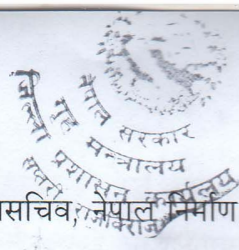 नेपाल सरकार
गृह मन्त्रालय
जिल्ला प्रशासन कार्यालय
सप्तरी, राजविराज
सचिव, नेपाल निर्माण